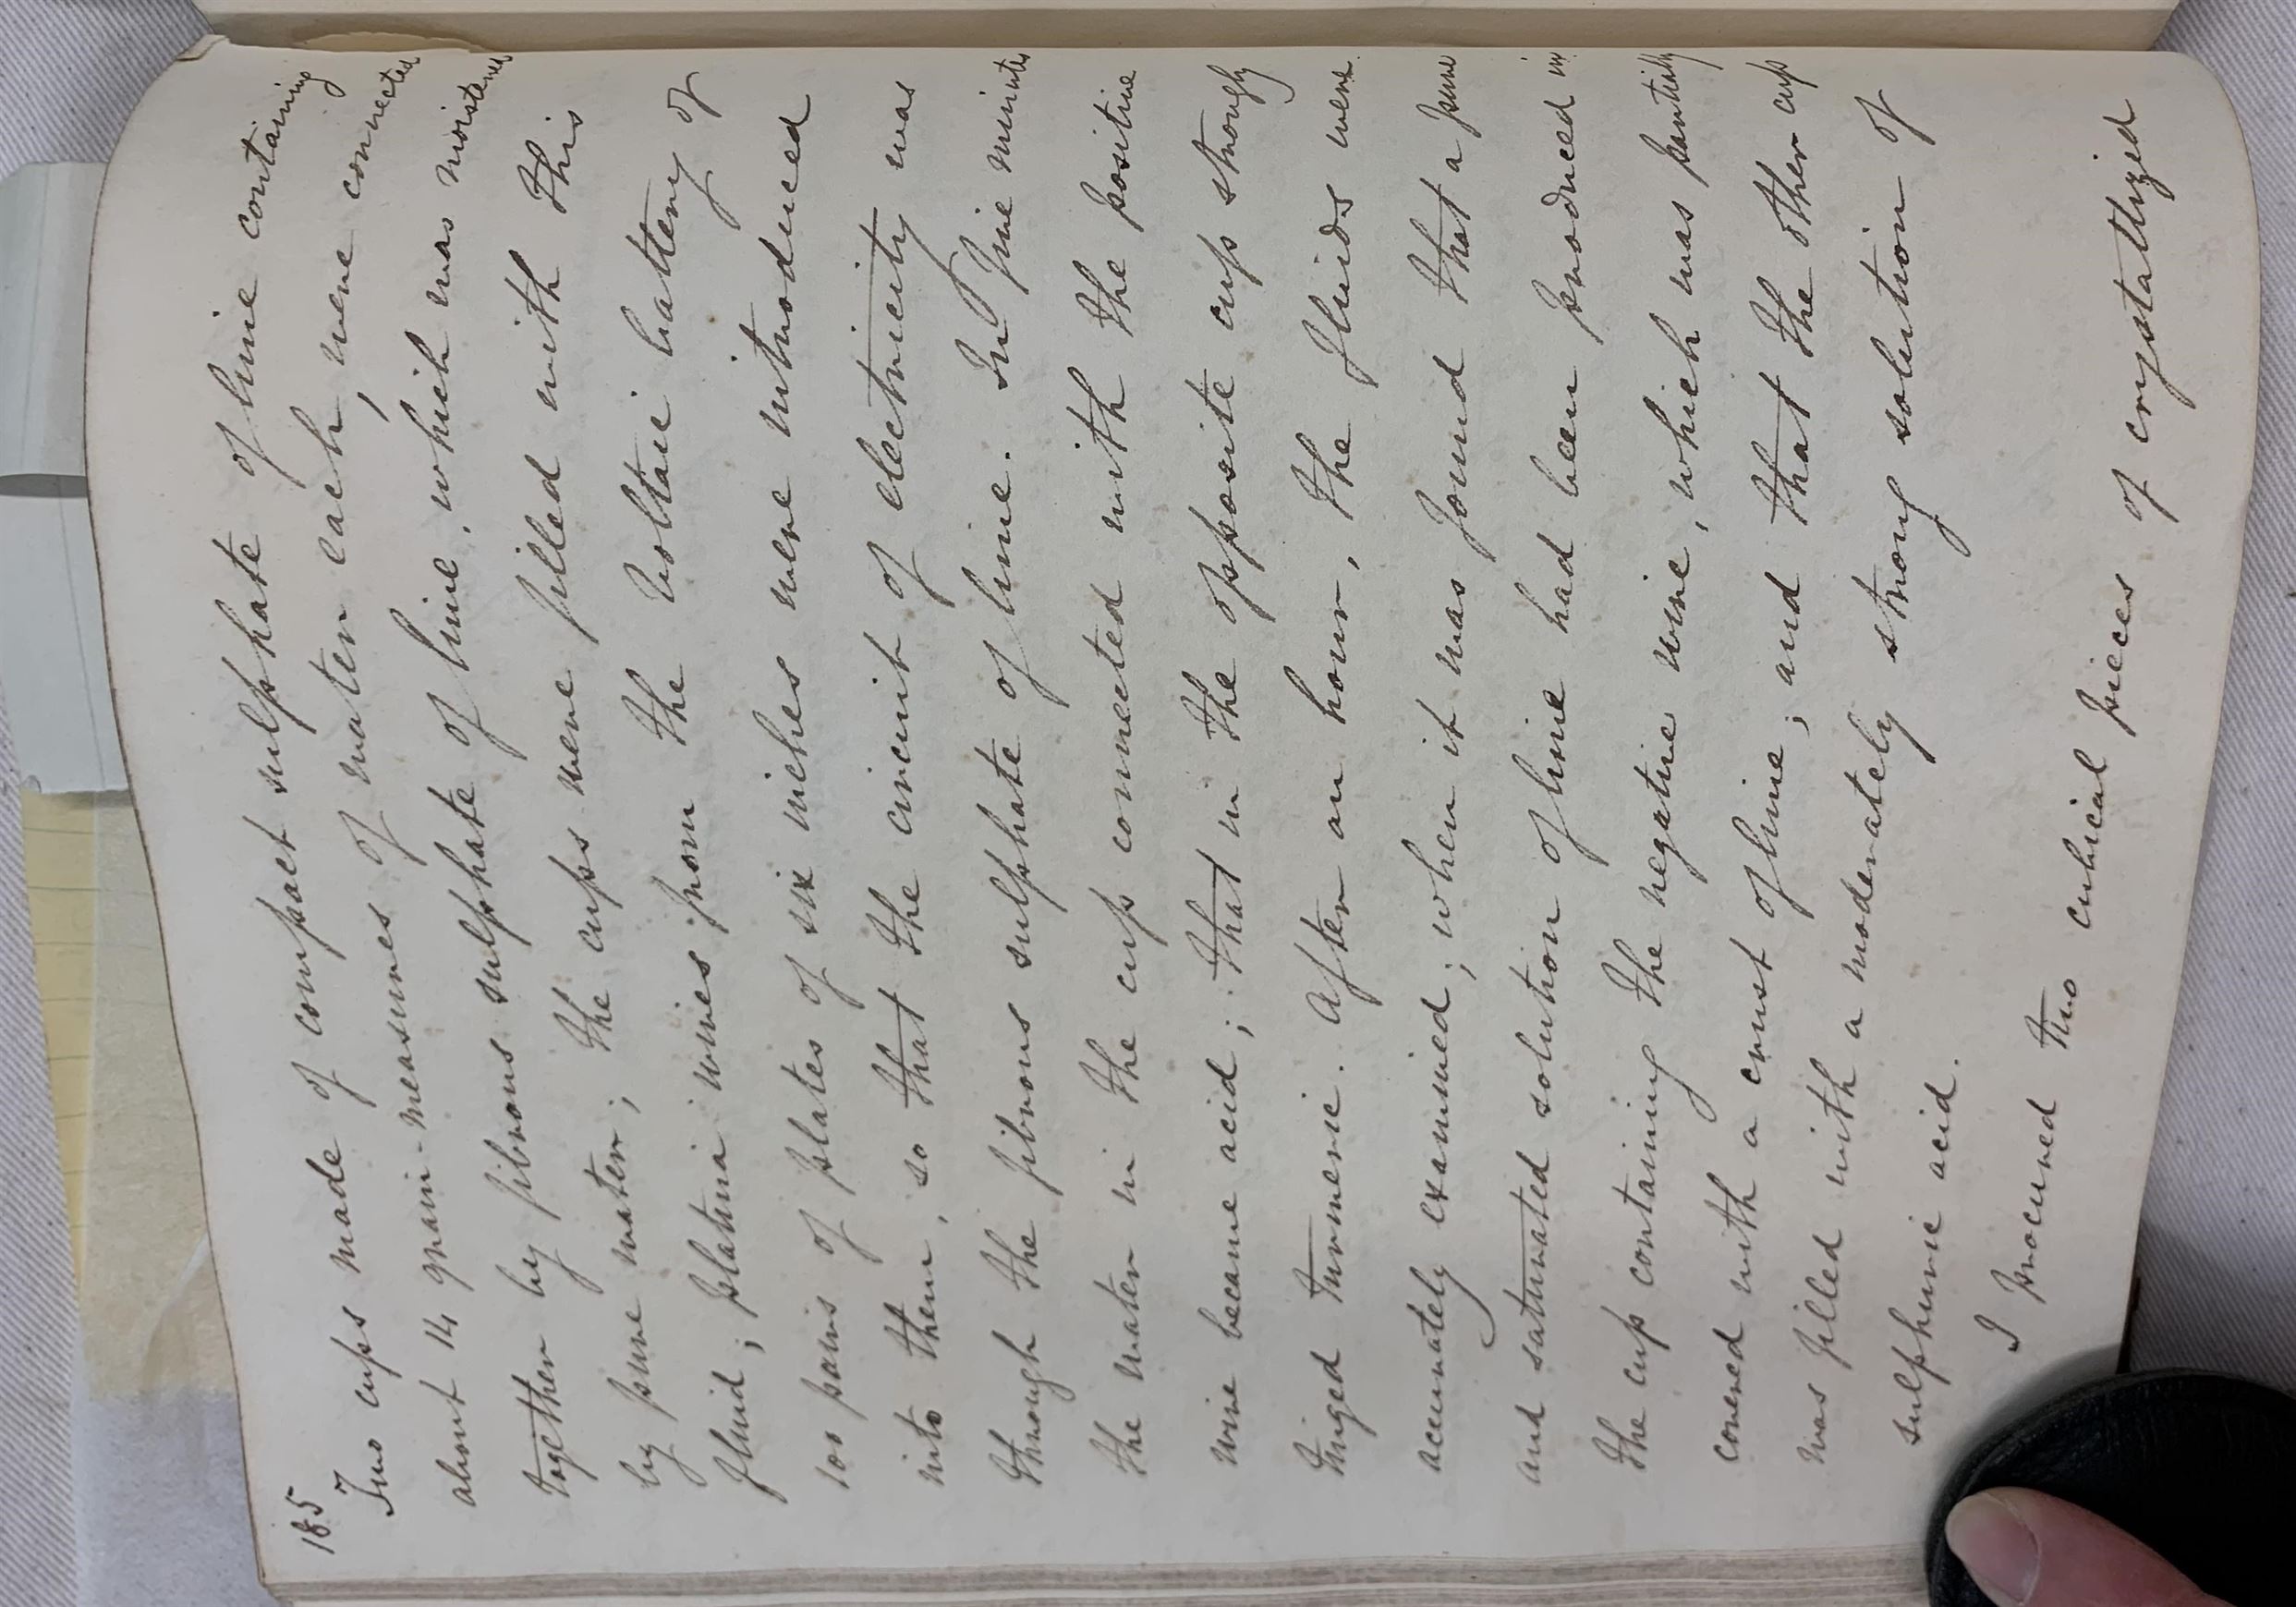 185
Two cups made of compact sulphate of lime containing
about 14 grain-measures of water each, were connected
together by fibrous sulphate of lime, which was moistened
by pure water; the cups were filled with this
fluid; platina wires from the Voltaic battery of
100 pairs of plates of six inches were introduced
into them, so that the circuit of electricity was
through the fibrous sulphate of lime. In five minutes
the water in the cup connected with the positive
wire became acid; that in the opposite cup strongly
tinged turmeric. After an hour, the fluids were
accurately examined; when it was found that a pure
and saturated solution of lime had been produced in
the cup containing the negative wire, which was partially
covered with a crust of lime; and that the other cup
was filled with a moderately strong solution of
sulphuric acid.
I procured two cubical pieces of crystallized